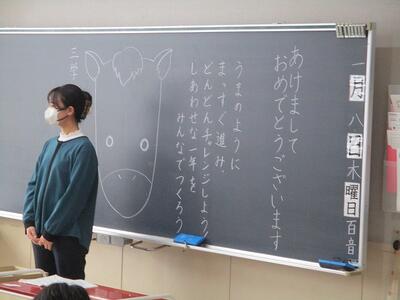 一月八日木曜日百音
あけまして
おめでとうございます
うまのように
まっすぐ進み、
どんどんチャレンジしよう
しあわせな一年を
みんなでつくろう
三学